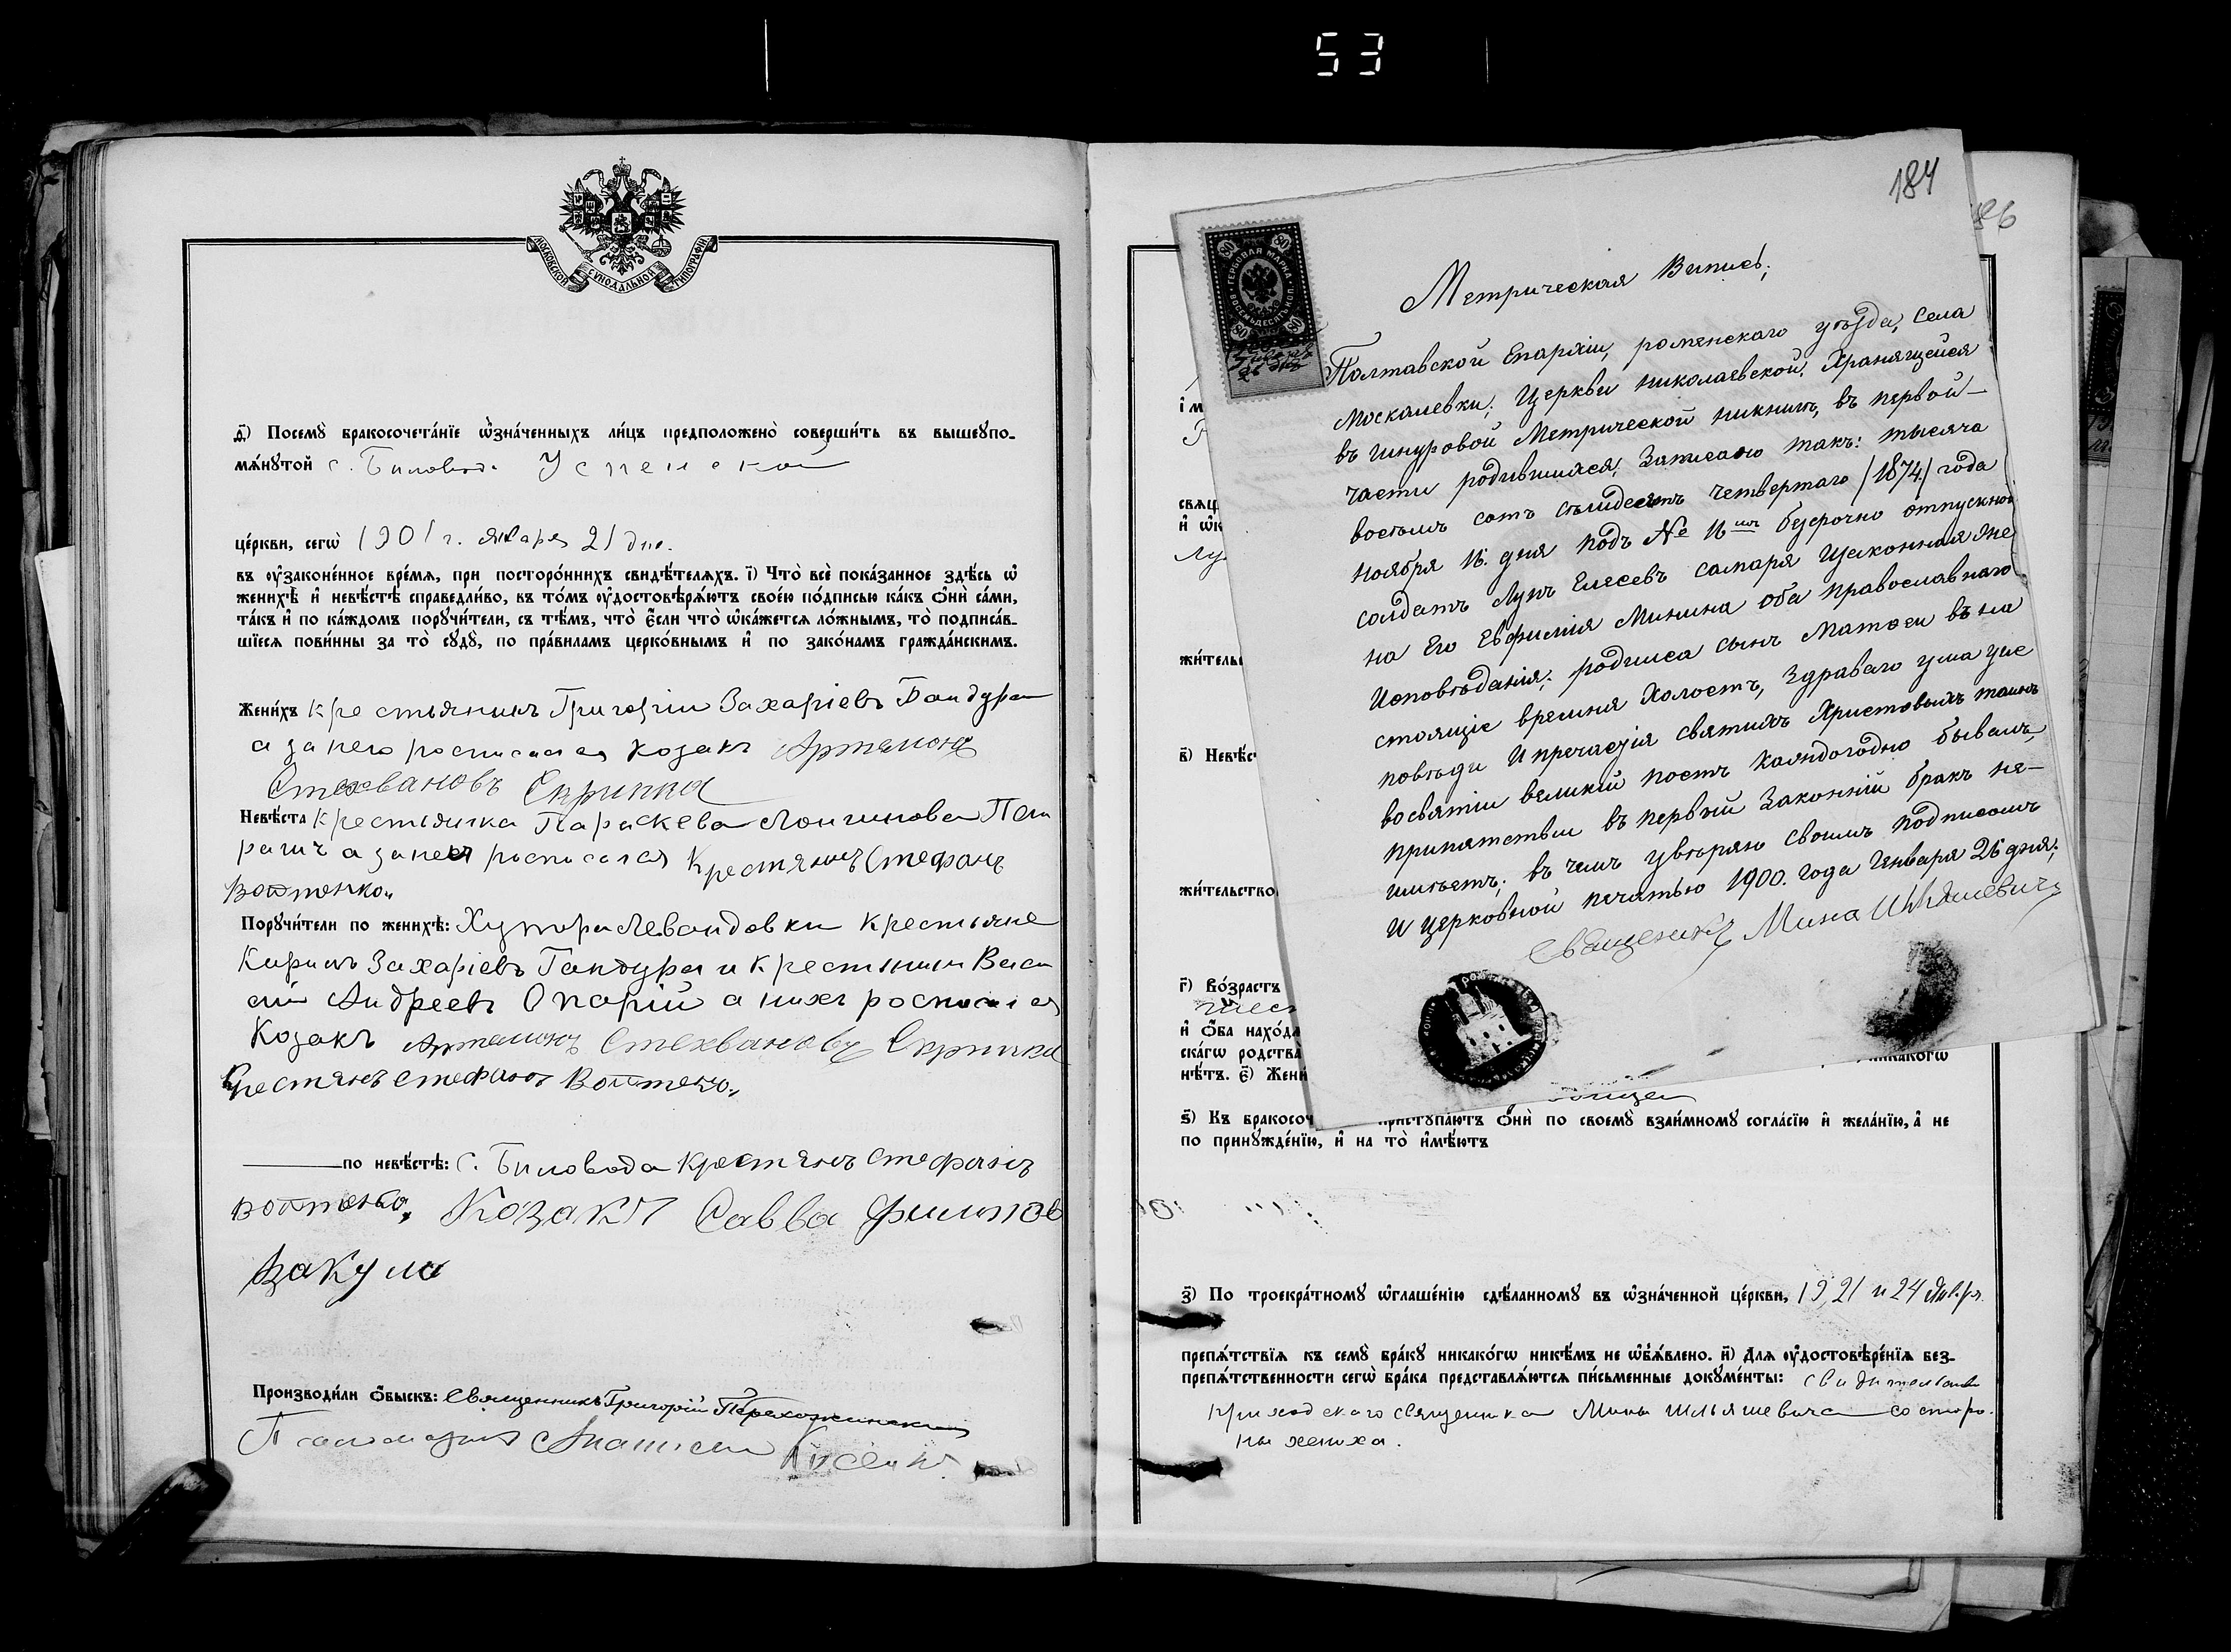 53
МОСКОВСКОЙ СУНОДАЛЬНОЙ ТИПОГРАФІИ
д҃) Посемꙋ̀ бракосочета́нїе ѡ҆зна́ченныхъ ли́цъ предположено̀ соверши́ть въ вышеꙋпо-
мѧ́нꙋтой с. Биловод. Успенской
це́ркви, сегѡ̀ 1901 г. января 21 дня.
въ ᲂу҆законе́нное вре́мѧ, при посторо́ннихъ свидѣ́телѧхъ. і҃) Что̀ всѐ пока́занное здѣ́сь ѡ҆
женихѣ̀ и҆ невѣ́стѣ справедли́во, въ то́мъ ᲂу҆достовѣрѧ́ютъ свое́ю по́дписью ка́къ ѻ҆нѝ са́ми,
та́къ и҆ по ка́ждомъ порꙋчи́тели, съ тѣ́мъ, что̀ є҆́сли что̀ ѡ҆ка́жетсѧ ло́жнымъ, то̀ подписа́в-
шїесѧ пови́нны за то̀ сꙋдꙋ̀, по пра́виламъ церко́внымъ и҆ по зако́намъ гражда́нскимъ.
Жени́хъ крестьянинъ Григорій Захаріевъ Бандура
а за него росписался козакъ Артамонъ
Стехвановъ Скрипка
Невѣ́ста крестьянка Параскева Лонгинова
а за нея росписался Крестянъ Стефанъ
Войтенко
Порꙋчи́тели по женихѣ̀: Хутора Левандовки крестьяне
Кирилъ Захаріевъ Бандура и крестьянин Васи
лій Андреевъ Опарій а нихъ росписался
Козакъ Артамонъ Стехвановъ Скрипка
Крестянъ Стефанъ Войтенко
по невѣ́стѣ: с. Биловода крестянъ Стефанъ
Войтенко, Козакъ Савва Филипов
Вакула
Производи́ли ѻ҆́быскъ: Священникъ Григорій
184
ГЕРБОВАЯ МАРКА ВОСЕМЬДЕСЯТЪ КОП.
80 80 80 80
Метрическая Випись;
Полтавской Епархіи, роменскаго уѣзда, Села
Москалевки; Церкви Николаевской. Хранящейся
въ шнуровой Метрической никнитѣ, въ первой-
части родившихся, Записано такъ: тысяча
восемъ сотъ семидесятъ четвертаго /1874/ года
ноября 16. дня подъ № 16мъ безрочно отпускной
солдатъ Лупъ Елисеевъ самаря Изаконная Же
на Его Евфимія Минина оба православнаго
Исповѣданія; родился сынъ Матвеи въ на
стоящіе времиня Холостъ, Здраваго ума у ис
повѣди И причастія святихъ Христовыхъ таинъ
восвятіи великій постъ каждогодно бывалъ,
припятствіи въ первій Законній бракъ не-
имѣетъ; въ чемъ увѣряю своимъ подписомъ
и церковной печатью 1900. года Генваря 26 дня;
Священикъ Мина Ильяшевичъ
і҆ м
свѧщ
и҆ ѡ҆к
жи́тель
в҃) Невѣ́с
жи́тельство
г҃) Во́зрастъ
и҆ ѻ҆́ба нахо́дѧ
ска́гѡ родства никакогѡ
нѣ́тъ. є҃) Жени
ѕ҃) Къ бракосоч пристꙋпа́ютъ ѻ҆нѝ по своемꙋ̀ взаи́мномꙋ согла́сїю и҆ жела́нїю, а҆ не
по принꙋжде́нїю, и҆ на то̀ и҆мѣ́ютъ
з҃) По троекра́тномꙋ ѡ҆глаше́нїю сдѣ́ланномꙋ въ ѡ҆зна́ченной це́ркви, 19, 21 и 24 Января
препѧ́тствїѧ къ семꙋ̀ бра́кꙋ никако́гѡ никѣ́мъ не ѡ҆б̾ѧ́влено. и҃) Длѧ ᲂу҆достовѣре́нїѧ без-
препѧ́тственности сегѡ̀ бра́ка представлѧ́ютсѧ пи́сьменные докꙋме́нты:
приходскаго священника Мины Ильяшевича со сторо-
ны жениха.